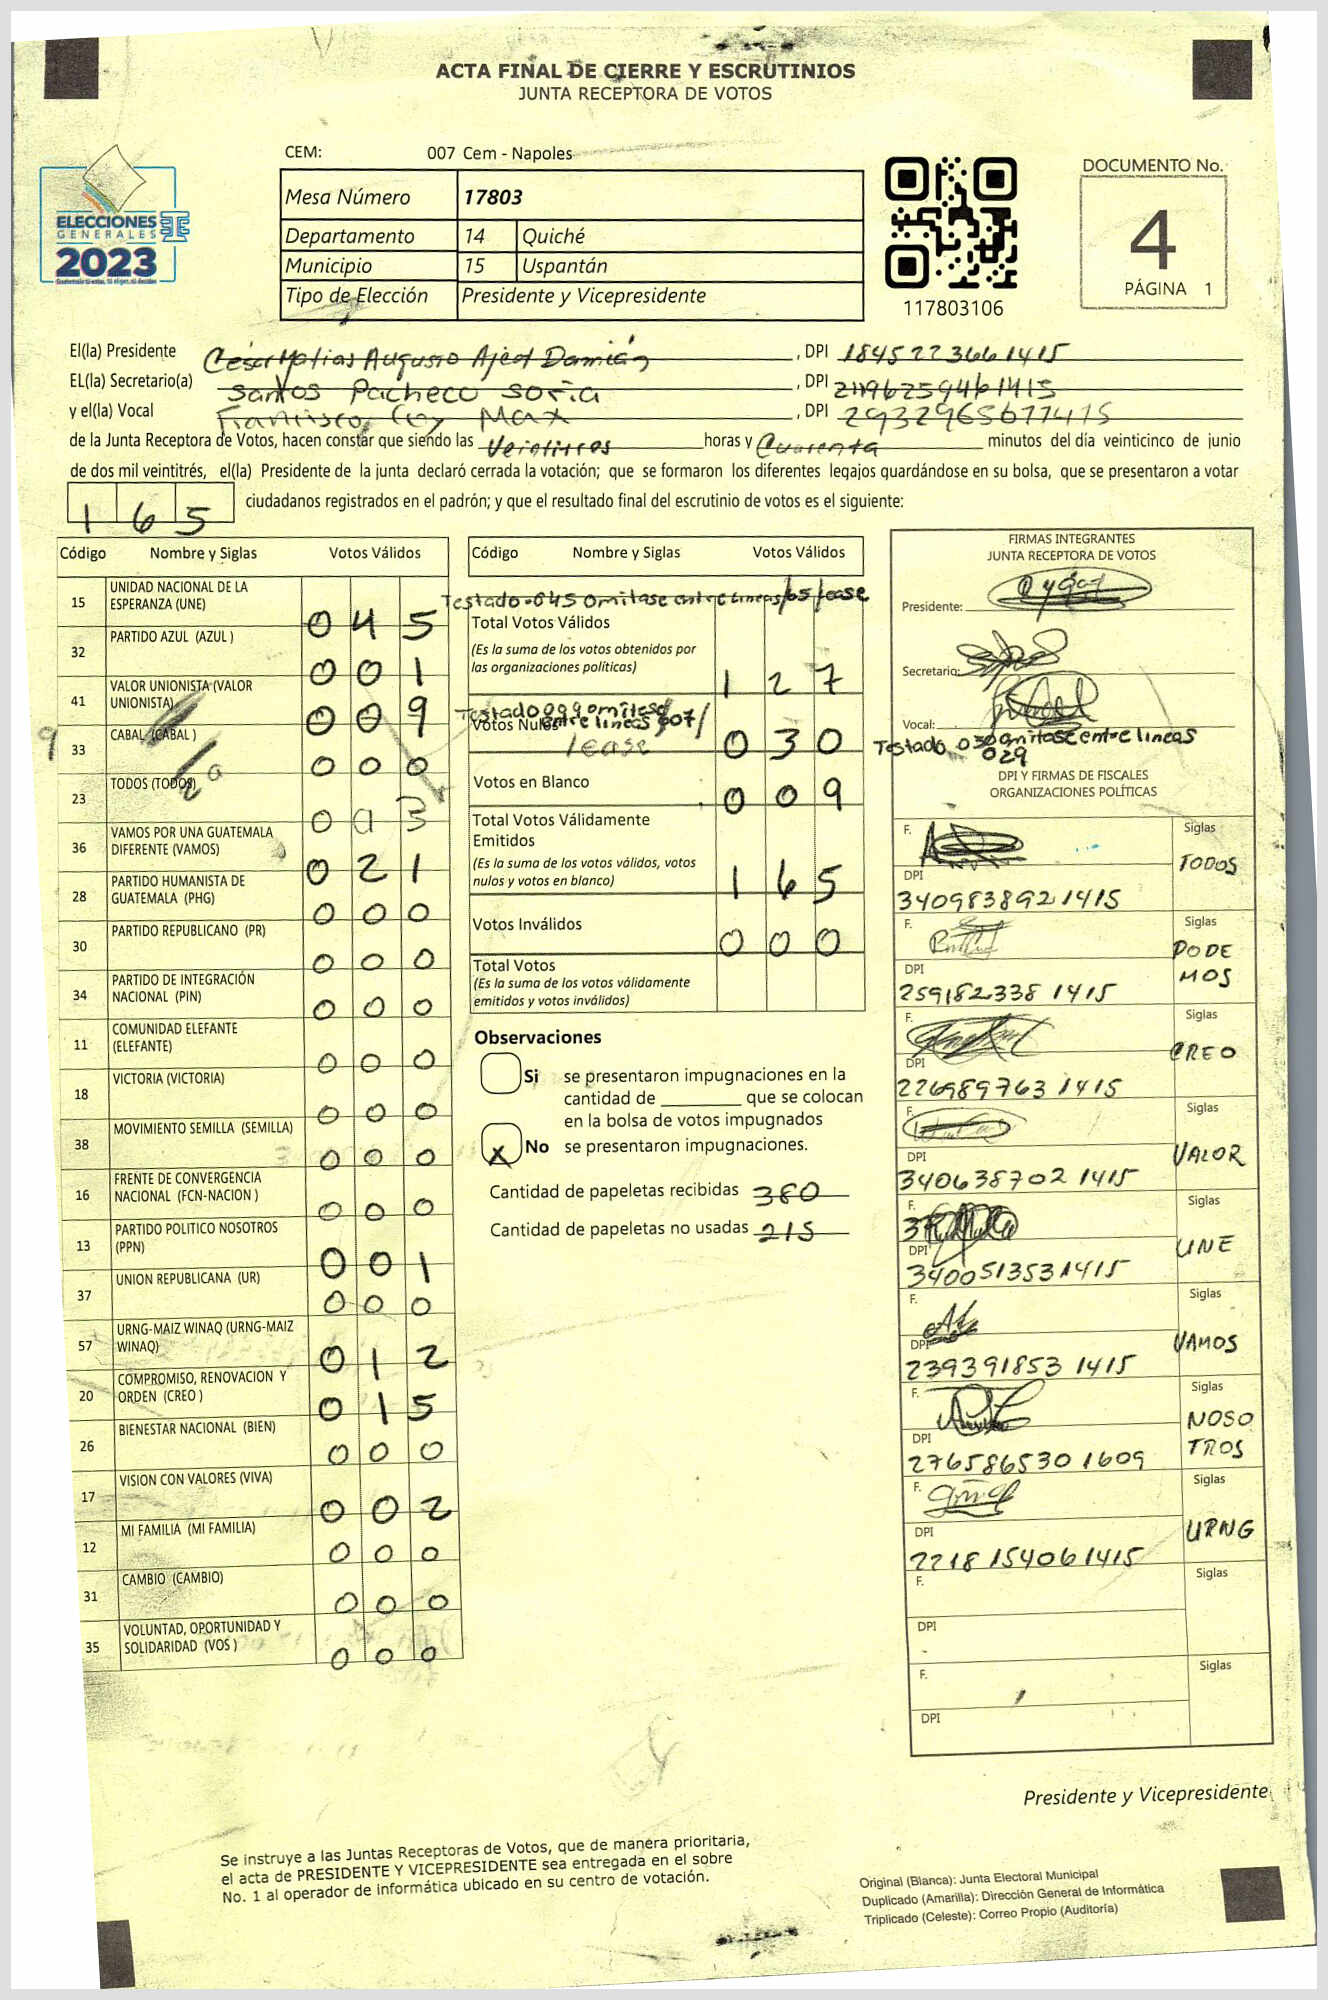 ACTA FINAL DE CIERRE Y ESCRUTINIOS
JUNTA RECEPTORA DE VOTOS
ELECCIONES
GENERALES
2023
CEM: 007 Cem - Napoles
Mesa Número 17803
Departamento 14 Quiché
Municipio 15 Uspantán
Tipo de Elección Presidente y Vicepresidente
117803106
DOCUMENTO No.
4
PÁGINA 1
El(la) Presidente César Matias Augusto Ajcot Damián, DPI 1845223661415
EL(la) Secretario(a) Santos Pacheco Soria, DPI 2119625946 1415
y el(la) Vocal Francisco Coy Max, DPI 2932965677415
de la Junta Receptora de Votos, hacen constar que siendo las Veintitres horas y Cuarenta minutos del día veinticinco de junio
de dos mil veintitrés, el(la) Presidente de la junta declaró cerrada la votación; que se formaron los diferentes legajos guardándose en su bolsa, que se presentaron a votar
165 ciudadanos registrados en el padrón; y que el resultado final del escrutinio de votos es el siguiente:
Código Nombre y Siglas Votos Válidos
15 UNIDAD NACIONAL DE LA ESPERANZA (UNE) 045
32 PARTIDO AZUL (AZUL ) 001
41 VALOR UNIONISTA (VALOR UNIONISTA) 009
33 CABAL (CABAL ) 000
23 TODOS (TODOS)
36 VAMOS POR UNA GUATEMALA DIFERENTE (VAMOS) 021
28 PARTIDO HUMANISTA DE GUATEMALA (PHG) 000
30 PARTIDO REPUBLICANO (PR) 000
34 PARTIDO DE INTEGRACIÓN NACIONAL (PIN) 000
11 COMUNIDAD ELEFANTE (ELEFANTE) 000
18 VICTORIA (VICTORIA) 000
38 MOVIMIENTO SEMILLA (SEMILLA) 000
16 FRENTE DE CONVERGENCIA NACIONAL (FCN-NACION ) 000
13 PARTIDO POLITICO NOSOTROS (PPN) 001
37 UNION REPUBLICANA (UR) 000
57 URNG-MAIZ WINAQ (URNG-MAIZ WINAQ) 012
20 COMPROMISO, RENOVACION Y ORDEN (CREO ) 015
26 BIENESTAR NACIONAL (BIEN) 000
17 VISION CON VALORES (VIVA) 002
12 MI FAMILIA (MI FAMILIA) 000
31 CAMBIO (CAMBIO) 000
35 VOLUNTAD, OPORTUNIDAD Y SOLIDARIDAD (VOS ) 000
Código Nombre y Siglas Votos Válidos
Testado 045 omitase entre lineas /65/ lease
Total Votos Válidos 127
(Es la suma de los votos obtenidos por
las organizaciones políticas)
Testado 009 omitase
entre lineas 007/
lease
Votos Nulos 030
Votos en Blanco 009
Total Votos Válidamente
Emitidos 165
(Es la suma de los votos válidos, votos
nulos y votos en blanco)
Votos Inválidos 000
Total Votos
(Es la suma de los votos válidamente
emitidos y votos inválidos)
Observaciones
Si se presentaron impugnaciones en la
cantidad de ________ que se colocan
en la bolsa de votos impugnados
X No se presentaron impugnaciones.
Cantidad de papeletas recibidas 380
Cantidad de papeletas no usadas 215
FIRMAS INTEGRANTES
JUNTA RECEPTORA DE VOTOS
Presidente:
Secretario:
Vocal:
Testado 030 omitase entre lineas
029
DPI Y FIRMAS DE FISCALES
ORGANIZACIONES POLÍTICAS
F. Siglas TODOS
DPI 3409838921415
F. Siglas PODEMOS
DPI 2591823381415
F. Siglas CREO
DPI 2269897631415
F. Siglas VALOR
DPI 3406387021415
F. Siglas UNE
DPI 3400513531415
F. Siglas VAMOS
DPI 2393918531415
F. Siglas NOSOTROS
DPI 2765865301609
F. Siglas URNG
DPI 2218154061415
F. Siglas
DPI
F. Siglas
DPI
Presidente y Vicepresidente
Se instruye a las Juntas Receptoras de Votos, que de manera prioritaria,
el acta de PRESIDENTE Y VICEPRESIDENTE sea entregada en el sobre
No. 1 al operador de informática ubicado en su centro de votación.
Original (Blanca): Junta Electoral Municipal
Duplicado (Amarilla): Dirección General de Informática
Triplicado (Celeste): Correo Propio (Auditoría)